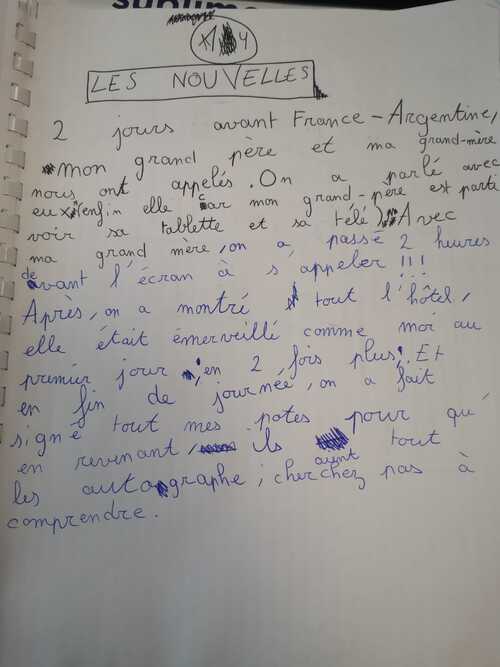 sublime
4
LES NOUVELLES
2 jours avant France-Argentine,
mon grand père et ma grand-mère
nous ont appelés. On a parlé avec
eux (enfin elle car mon grand-père est parti
voir sa tablette et sa télé). Avec
ma grand mère, on a passé 2 heures
devant l'écran à s'appeler !!!
Après, on a montré tout l'hôtel,
elle était émerveillé comme moi au
premier jour, en 2 fois plus! Et
en fin de journée, on a fait
signé tout mes potes pour qu'
en revenant, Ils aient tout
les autographe ; cherchez pas à
comprendre.